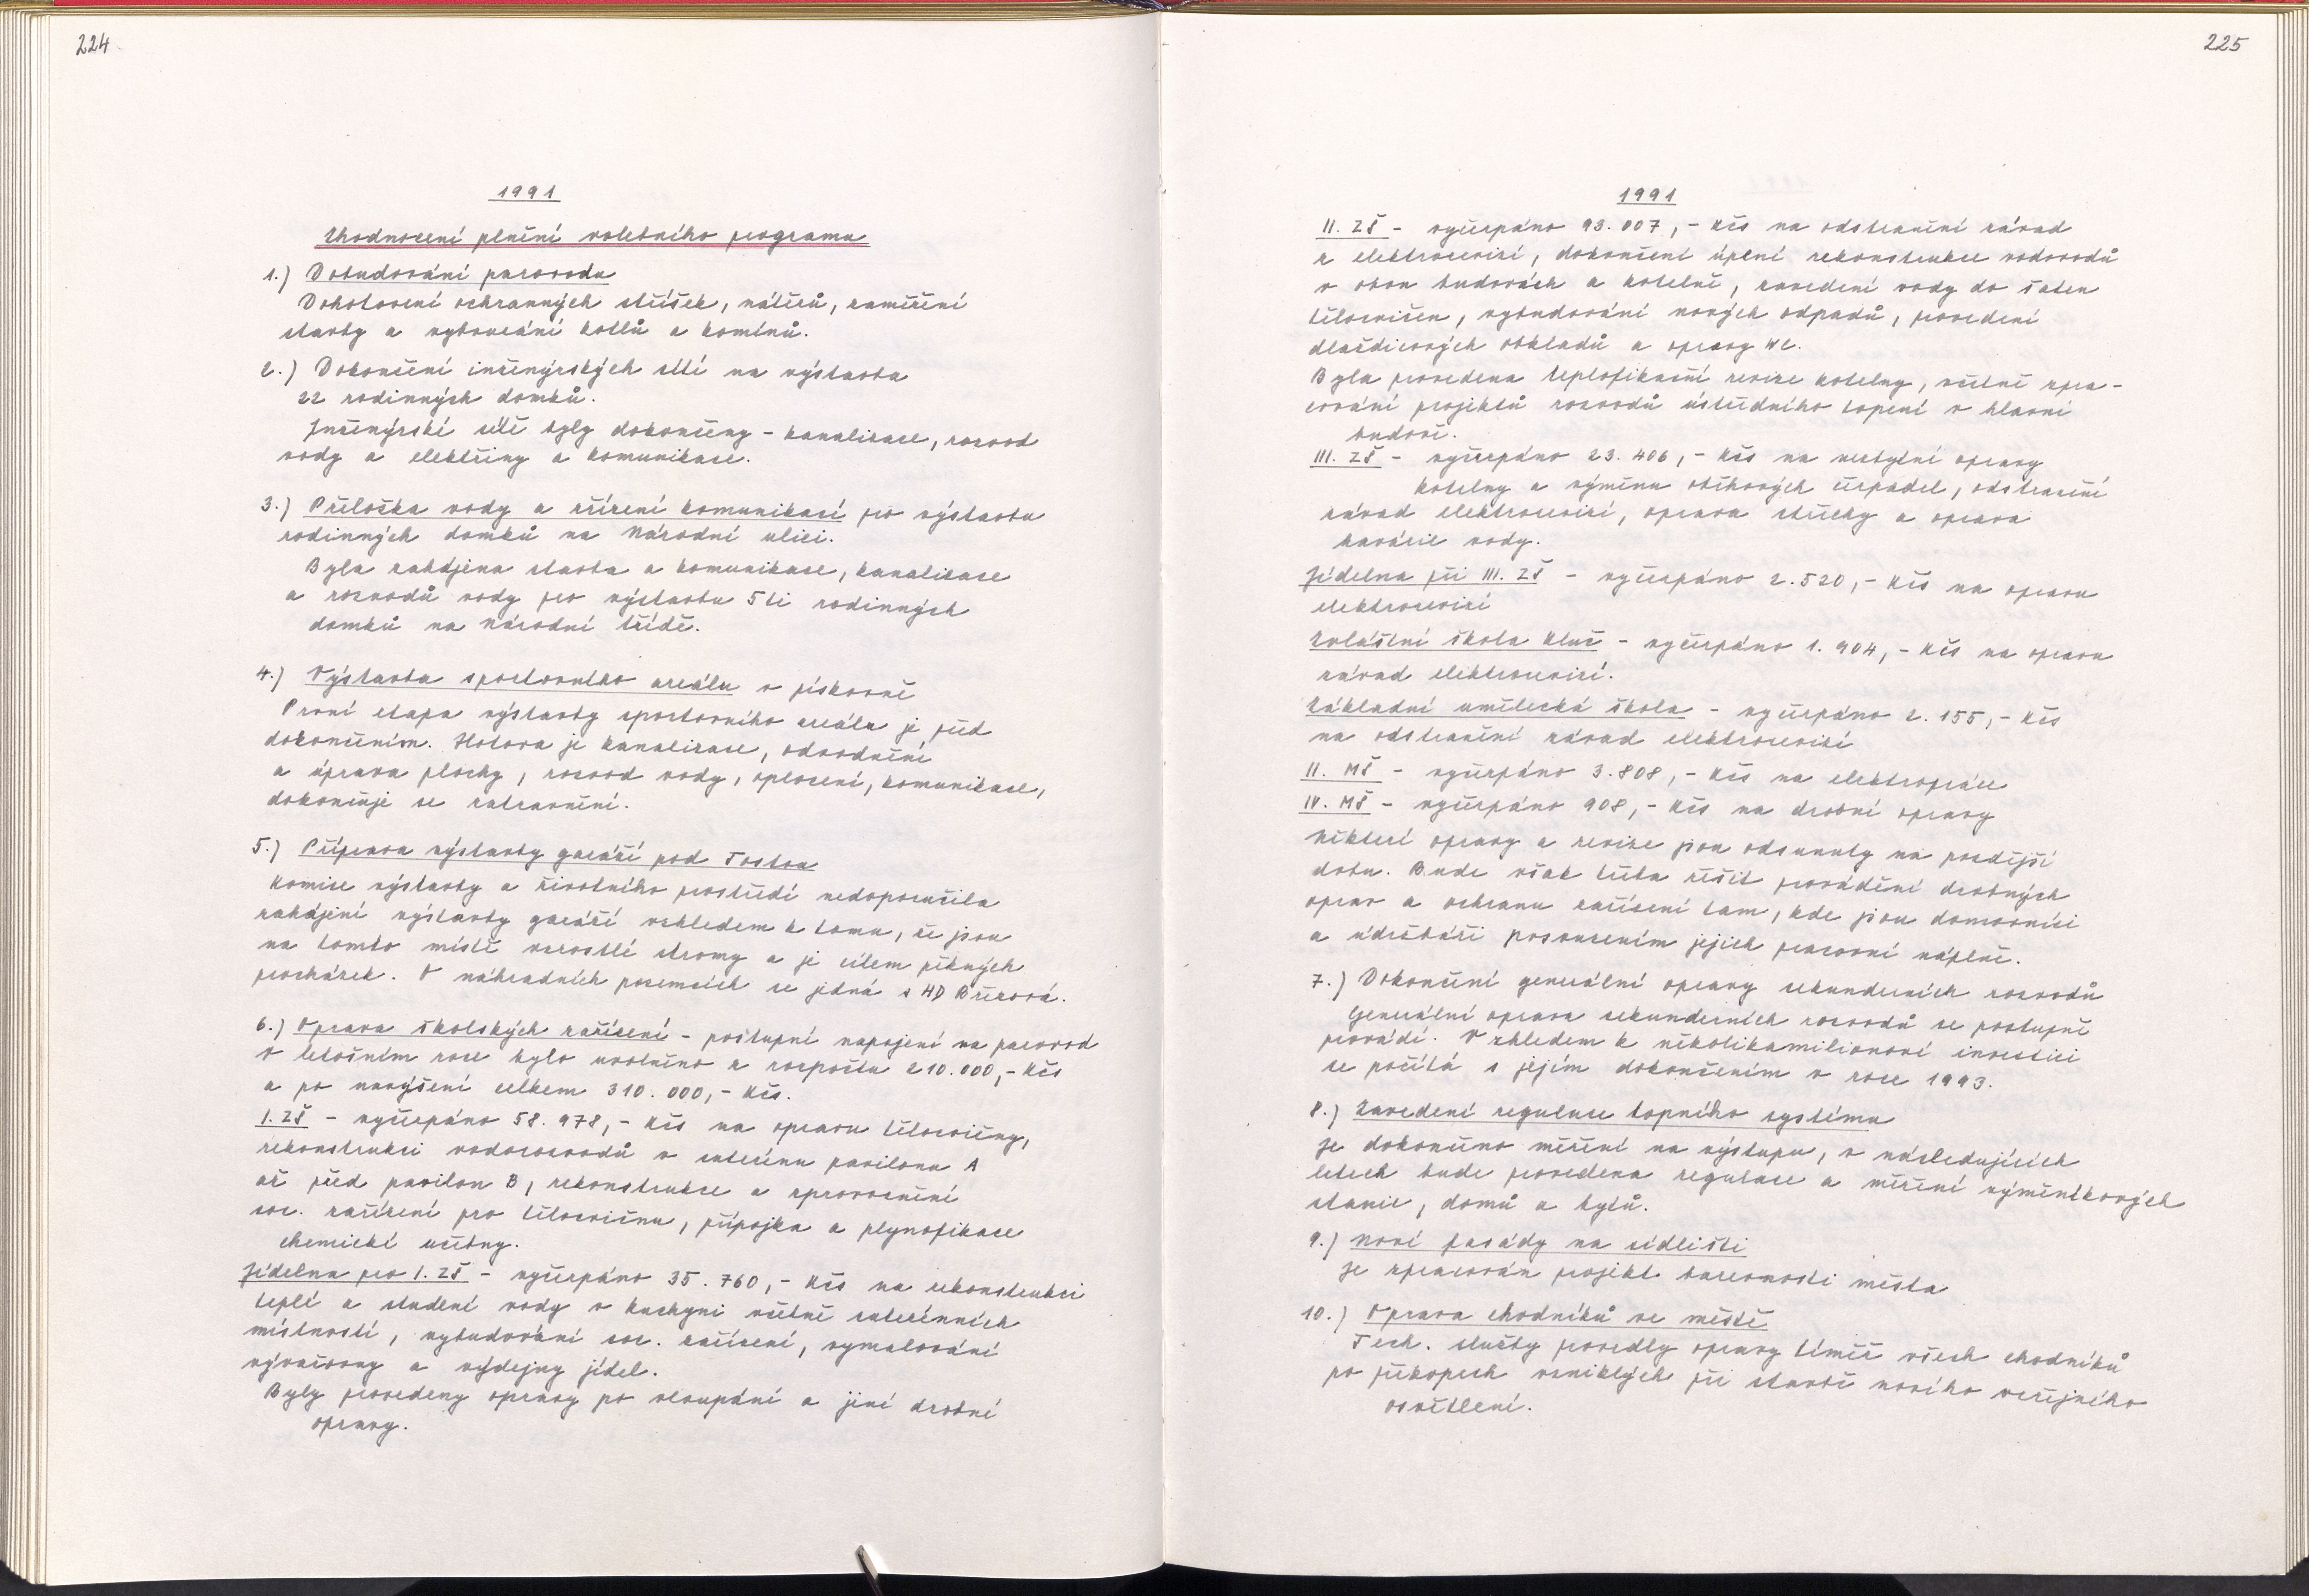 224
1991
Zhodnocení plnění volebního programu
1.) Dobudování parovodu
Dohotovení ochranných stříšek, nátěrů, zaměření
stavby a vybourání kotlů a komínů.
2.) Dokončení inženýrských sítí na výstavbu
22 rodinných domků.
Inženýrské sítě byly dokončeny - kanalizace, rozvod
vody a elektřiny a komunikace.
3.) Přeložka vody a zřízení komunikací pro výstavbu
rodinných domků na Národní ulici.
Byla zahájena stavba a komunikace, kanalizace
a rozvodů vody pro výstavbu 5ti rodinných
domků na Národní třídě.
4.) Výstavba sportovního areálu v pískovně
První etapa výstavby sportovního areálu je před
dokončením. Hotova je kanalizace, odvodnění
a úprava plochy, rozvod vody, oplocení, komunikace,
dokončuje se zatravnění.
5.) Příprava výstavby garáží pod Tostou
Komise výstavby a životního prostředí nedoporučila
zahájení výstavby garáží vzhledem k tomu, že jsou
na tomto místě vzrostlé stromy a je cílem pěkných
procházek. O náhradních pozemcích se jedná s HD Březová.
6.) Oprava školských zařízení - postupné napojení na parovod
V letošním roce bylo uvolněno z rozpočtu 210.000,- Kčs
a po navýšení celkem 310.000,- Kčs.
I. ZŠ - vyčerpáno 58.978,- Kčs na opravu tělocvičny,
rekonstrukci vodorozvodů v suterénu pavilonu A
až před pavilon B, rekonstrukce a zprovoznění
soc. zařízení pro tělocvičnu, přípojka a plynofikace
chemické učebny.
Jídelna pro I. ZŠ - vyčerpáno 35.760,- Kčs na rekonstrukci
teplé a studené vody v kuchyni včetně suterénních
místností, vybudování soc. zařízení, vymalování
vývařovny a výdejny jídel.
Byly provedeny opravy po vloupání a jiné drobné
opravy.
225
1991
II. ZŠ - vyčerpáno 93.007,- Kčs na odstranění závad
z elektrorevizí, dokončení úplné rekonstrukce vodovodů
v obou budovách a kotelně, zavedení vody do šaten
tělocvičen, vybudování nových odpadů, provedení
dlaždicových obkladů a opravy WC.
Byla provedena teplofikační revize kotelny, včetně zpra-
cování projektů rozvodů ústředního topení v hlavní
budově.
III. ZŠ - vyčerpáno 23.406,- Kčs na nezbytné opravy
kotelny a výměnu oběhových čerpadel, odstranění
závad elektrorevizí, oprava střechy a oprava
havárie vody.
Jídelna při III. ZŠ - vyčerpáno 2.520,- Kčs na opravu
elektrorevizí
Zvláštní škola Kluč - vyčerpáno 1.904,- Kčs na opravu
závad elektrorevizí.
Základní umělecká škola - vyčerpáno 2.155,- Kčs
na odstranění závad elektrorevizí
II. MŠ - vyčerpáno 3.808,- Kčs na elektropráce
IV. MŠ - vyčerpáno 908,- Kčs na drobné opravy
Některé opravy a revize jsou odsunuty na pozdější
dobu. Bude však třeba řešit provádění drobných
oprav a ochranu zařízení tam, kde jsou domovníci
a údržbáři posouzením jejich pracovní náplně.
7.) Dokončení generální opravy sekunderních rozvodů
Generální oprava sekunderních rozvodů se postupně
provádí. Vzhledem k několikamilionové investici
se počítá s jejím dokončením v roce 1993.
8.) Zavedení regulace topného systému
Je dokončeno měření na výstupu, v následujících
letech bude provedena regulace a měření výměníkových
stanic, domů a bytů.
9.) Nové fasády na sídlišti
Je zpracován projekt barevnosti města
10.) Oprava chodníků ve městě
Tech. služby provedly opravy téměř všech chodníků
po překopech vzniklých při stavbě nového veřejného
osvětlení.